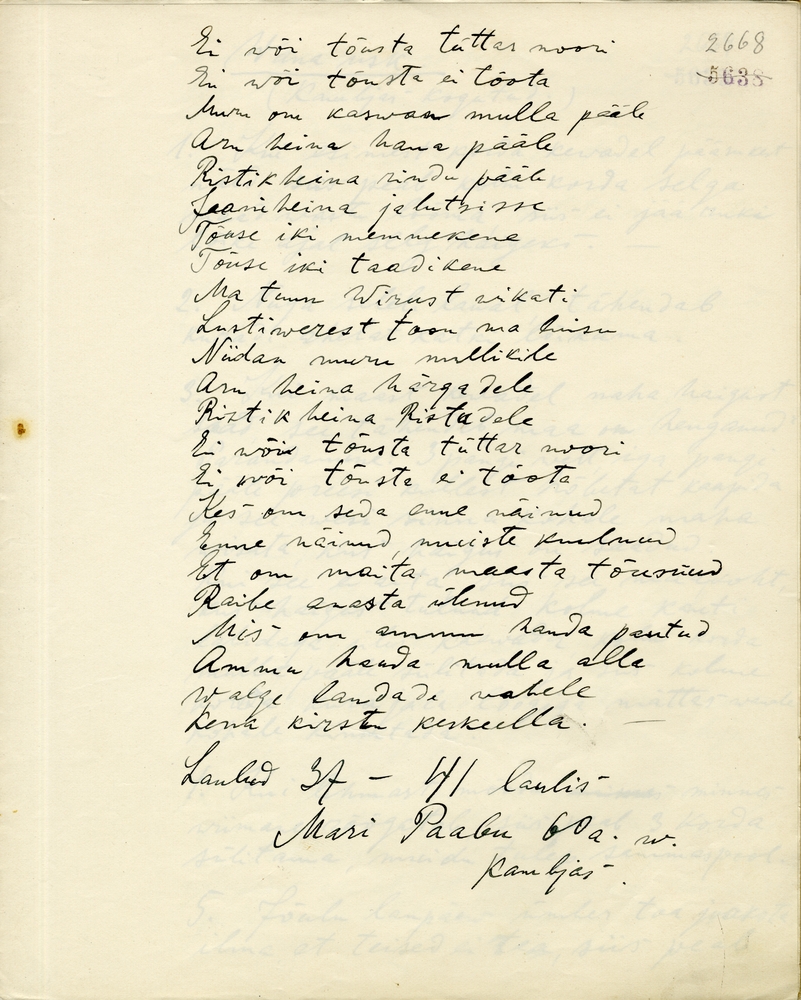 Ei wõi tõusta tüttar noori
2668
Ei wõi tõusta ei tõota
5638
Muru om kaswan mulla pääle
Aru heina haua pääle
Ristikheina rindu pääle
Jaaniheina jalutsisse
Tõuse iki memmekene
Tõuse iki taadikene
Ma tuun Wirust wikati
Lustiwerest toon ma luisu
Niidan muru mullikile
Aru heina härgadele
Ristikheina Ristadele
Ei wõi tõusta tüttar noori
Ei wõi tõusta ei tõota
Kes om seda enne näinud
Enne näinud, muiste kuulnud
Et om maita maasta tõusnud
Raibe arasta ülenud
Mis om ammu hauda pantud
Ammu hauda mulla alla
Walge laudade wahele
Kena kirstu keskeella. —
Laulud 37 — 41 laulis
Mari Paabu 60 a. w.
Kambjas.